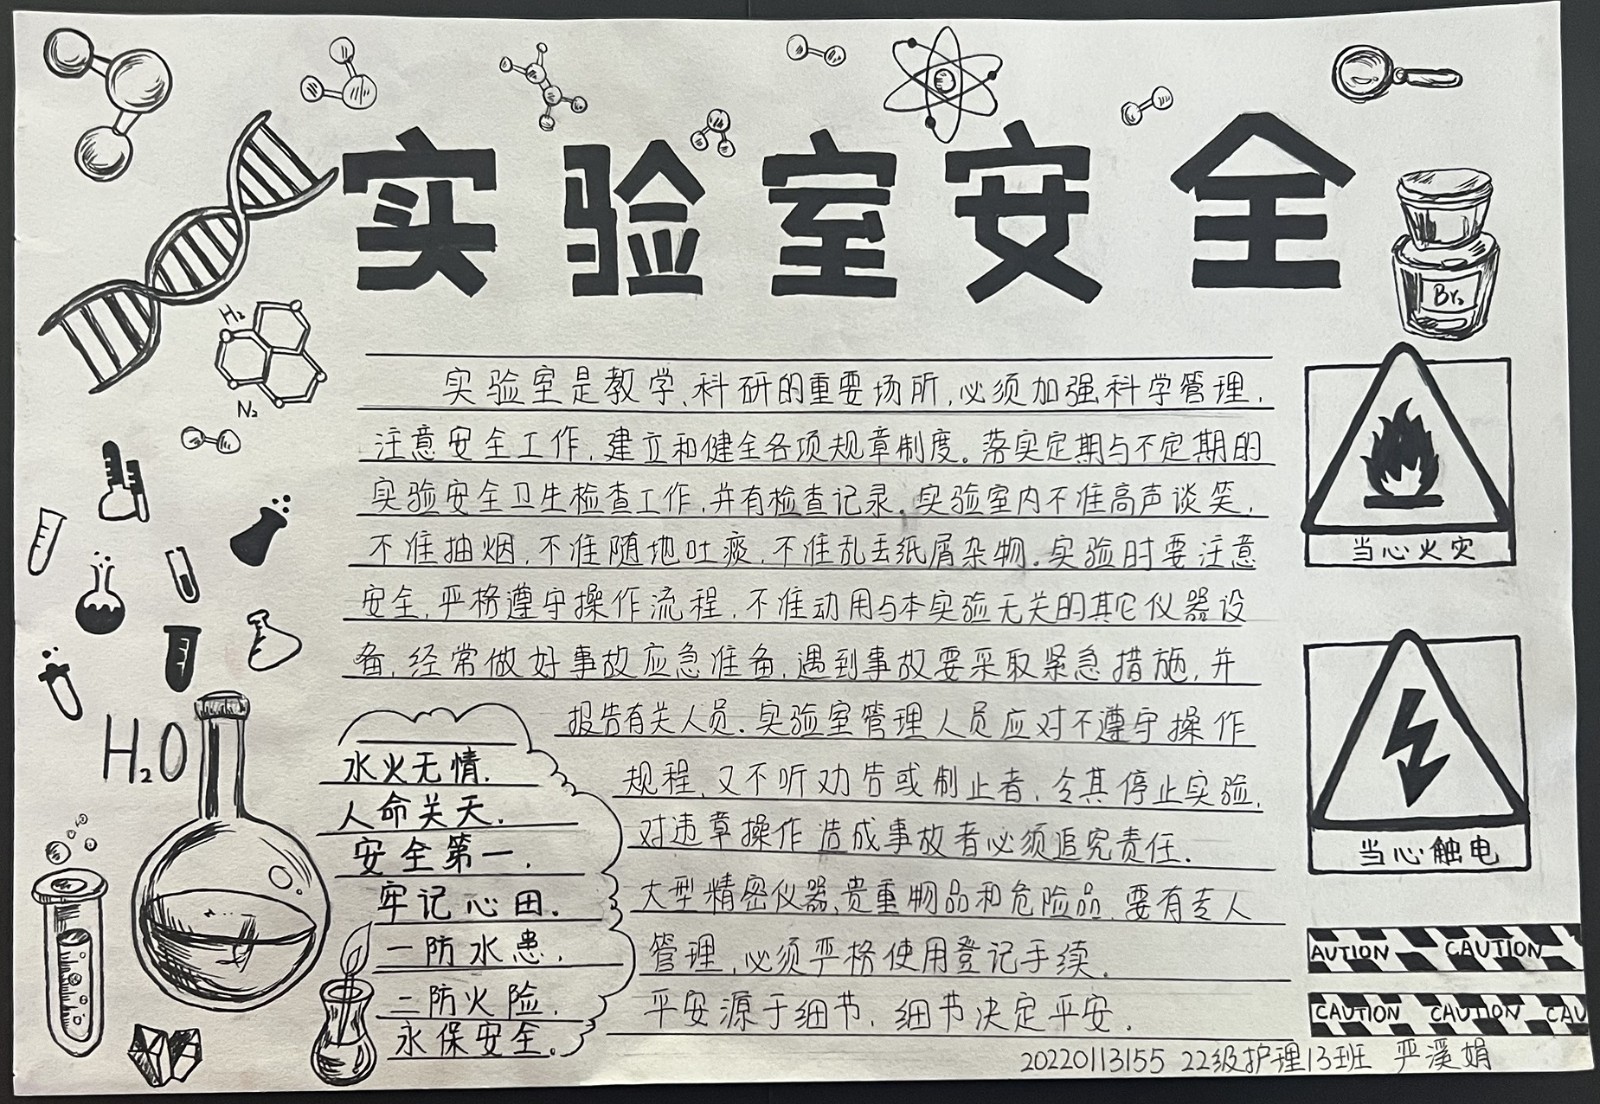 实验室安全
Br₂
H₂
N₂
实验室是教学、科研的重要场所,必须加强科学管理,
注意安全工作,建立和健全各项规章制度。落实定期与不定期的
实验安全卫生检查工作,并有检查记录。实验室内不准高声谈笑,
不准抽烟,不准随地吐痰,不准乱丢纸屑杂物。实验时要注意
安全,严格遵守操作流程,不准动用与本实验无关的其它仪器设
备,经常做好事故应急准备,遇到事故要采取紧急措施,并
报告有关人员。实验室管理人员应对不遵守操作
规程,又不听劝告或制止者,令其停止实验,
对违章操作造成事故者必须追究责任.
大型精密仪器,贵重物品和危险品,要有专人
管理,必须严格使用登记手续.
平安源于细节,细节决定平安.
H₂O
水火无情,
人命关天,
安全第一,
牢记心田.
一防水患,
二防火险,
永保安全。
当心火灾
当心触电
AUTION CAUTION
CAUTION CAUTION CAU
20220113155 22级护理13班 严溪娟